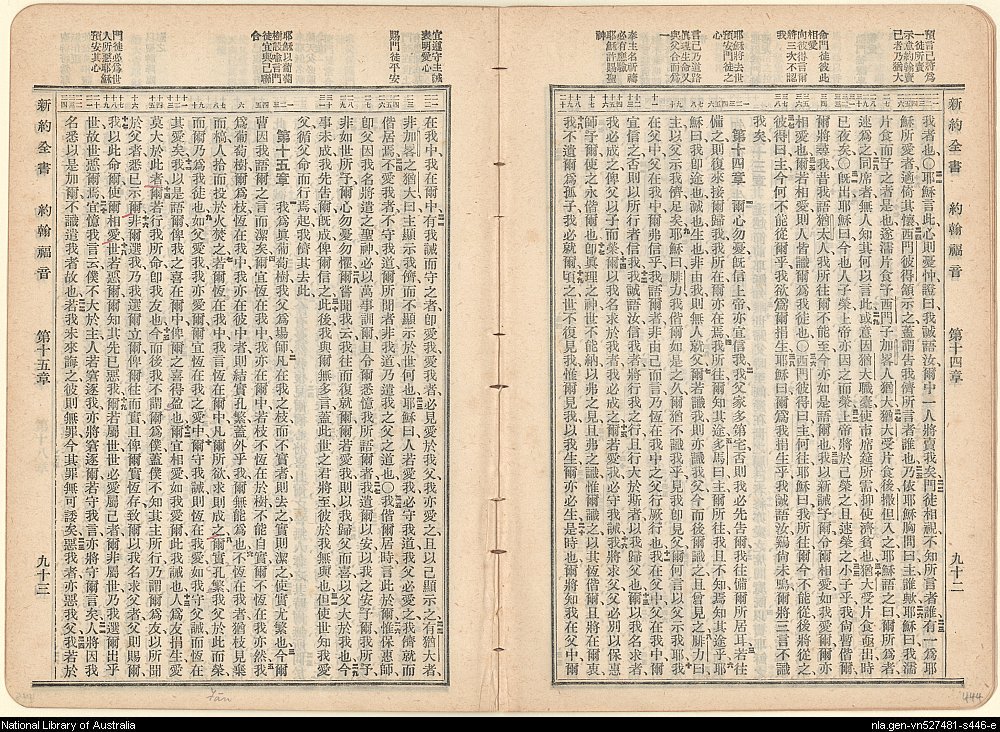 新約全書　約翰福音　第十四章　九十二
預言已將爲
一徒所賣
示意約翰賣
己者乃猶大
命門徒彼此
相愛
向彼得言爾
將三次不認
我
耶穌將去世
預安門徒之
心
言己乃道路
真理生命又
與父合而爲
一
奉主名祈禱
必有應驗
耶穌許賜聖
神
我者也○耶穌言此心則憂忡證曰我誠語汝爾中一人將賣我矣門徒相視不知所言者誰有一爲耶
穌所愛者適倚其懷西門彼得頷示之蓋謂告我儕所言者誰也乃依耶穌胸間曰主誰歟耶穌曰我濡
片食而予之者是也遂濡片食予西門子加畧人猶大猶大受片食後撒但入之耶穌語之曰爾所爲者
速爲之同席者無人知其何以言此或意因猶大職橐使市席筵所需抑使濟貧也猶大受片食亟出時
已夜矣○旣出耶穌曰今也人子榮上帝亦因之而榮上帝將於己榮之且速榮之小子乎我尙暫偕爾
爾將尋我昔我語猶太人我所往爾不能至今亦如是語爾也我以新誡予爾令爾相愛如我愛爾爾亦
相愛也爾若相愛則人皆識爾爲我徒也○西門彼得曰主何往耶穌曰我所往爾今不能從後將從之
彼得曰主今何不能從爾乎我欲爲爾捐生耶穌曰爾爲我捐生乎我誠語汝鷄尙未鳴爾將三言不識
我矣
第十四章　爾心勿憂旣信上帝亦宜信我我父家多第宅否則我必先告爾我往備爾所居耳若往
備之則復來接爾歸我我所在爾亦在焉我所往爾知之其途爾亦知之多馬曰主爾所往我且不知焉知其途乎耶
穌曰我卽途也誠也生也非由我則無人就父爾若識我則亦識我父今而後爾識之且曾見之腓力曰
主以父示我儕足矣耶穌曰腓力我偕爾如是之久爾猶不識我乎見我卽見父爾何言以父示我耶我
在父中父在我中爾弗信乎我語爾者非由己而言乃恆在我中之父行厥行也我在父中父在我中爾
宜信之否則以所行者信我我誠語汝信我者將行我之行且行大於斯者以我歸父也爾以我名求者
我必成之俾父以子而榮爾以我名求於我者我必成之爾若愛我必守我誡我將求父父必別以保惠
師予爾使之永偕爾也卽眞理之神世不能納以弗之見且弗之識惟爾識之以其恆偕爾且將在爾衷
我不遺爾爲孤子我必就爾頃之世不復見我惟爾見我以我生爾亦必生是時也爾將知我在父中爾
444
新約全書　約翰福音　第十五章　九十三
宜遵守主誡
表明愛心
賜門徒平安
耶穌以葡萄
樹設喩言門
徒宜與己聯
合
門徒必爲世
人所惡耶穌
預安其心
在我中我在爾中有我誡而守之者卽愛我愛我者必見愛於我父我亦愛之且以己顯示之有猶大者
非加畧之猶大曰主顯示我儕而不顯示於世何也耶穌曰人若愛我必守我道我父必愛之我儕就而
偕居焉不愛我者不守我道爾所聞者非我道乃遣我之父之道也○我偕爾居時言此於爾惟保惠師
卽父因我名將遣之聖神必以萬事訓爾且令爾悉憶我所語爾者我遺爾以安卽以我之安予爾我所予
非如世所予爾心勿憂勿懼爾嘗聞我云我往而復就爾爾若愛我則以我歸父而喜以父大於我也今
事未成我先告爾旣成俾爾信之此後我與爾無多言蓋此世之君將至彼於我無與也但使世知我愛
父循父命而行焉起我儕其去此
第十五章　我爲眞葡萄樹我父爲場師凡在我之枝而不實者則去之實則潔之使實尤繁也今爾
曹因我語爾之言而潔矣爾宜恆在我中我亦在爾中若枝不恆在於樹不能自實爾不恆在我亦然我
爲葡萄樹爾爲枝恆在我中我亦在彼中者則結實孔繁蓋外乎我爾無能爲也不恆在我者猶枝見棄
而槁人拾而投於火焚之若爾恆在我中我言恆在爾中凡爾所欲求則成之爾實孔繁我父於此而榮
而爾乃爲我徒也如父愛我我亦愛爾爾宜恆在我之愛中爾守我誡則恆在我愛如我守父誡而恆在
其愛矣我以是語爾俾我之喜在爾中俾爾之喜得盈也爾宜相愛如我愛爾此我誡也人爲友捐生愛
莫大於此者爾若行我所命卽我友也今而後我不謂爾爲僕蓋僕不知其主所行乃謂爾爲友以所聞
於父者悉已示爾非爾選我乃我選爾立爾俾爾往而實且俾爾實恆存致爾以我名求父者父則賜爾
我以此命爾使爾相愛世若惡爾爾知其先已惡我爾若屬世世必愛屬己者爾非屬世乃我選爾出乎
世故世惡爾焉宜憶我言云僕不大於主人若窘逐我亦將窘逐爾若守我言亦將守爾言矣人將因我
名悉以是加爾不識遣我者故也若我未來誨之彼則無罪今其罪無可諉矣惡我者亦惡我父我若於
National Library of Australia
nla.gen-vn527481-s446-e